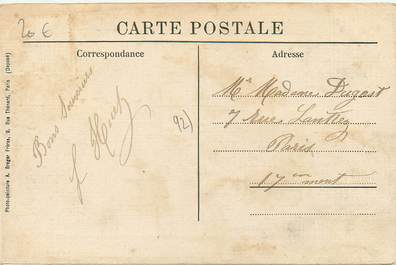 20 €
CARTE POSTALE
Correspondance
Adresse
Photo-peinture A. Breger Frères, 9, Rue Thénard, Paris (Déposé)
Bons Souvenirs
92)
Mr Madame Dugast
7 rue
Paris
17